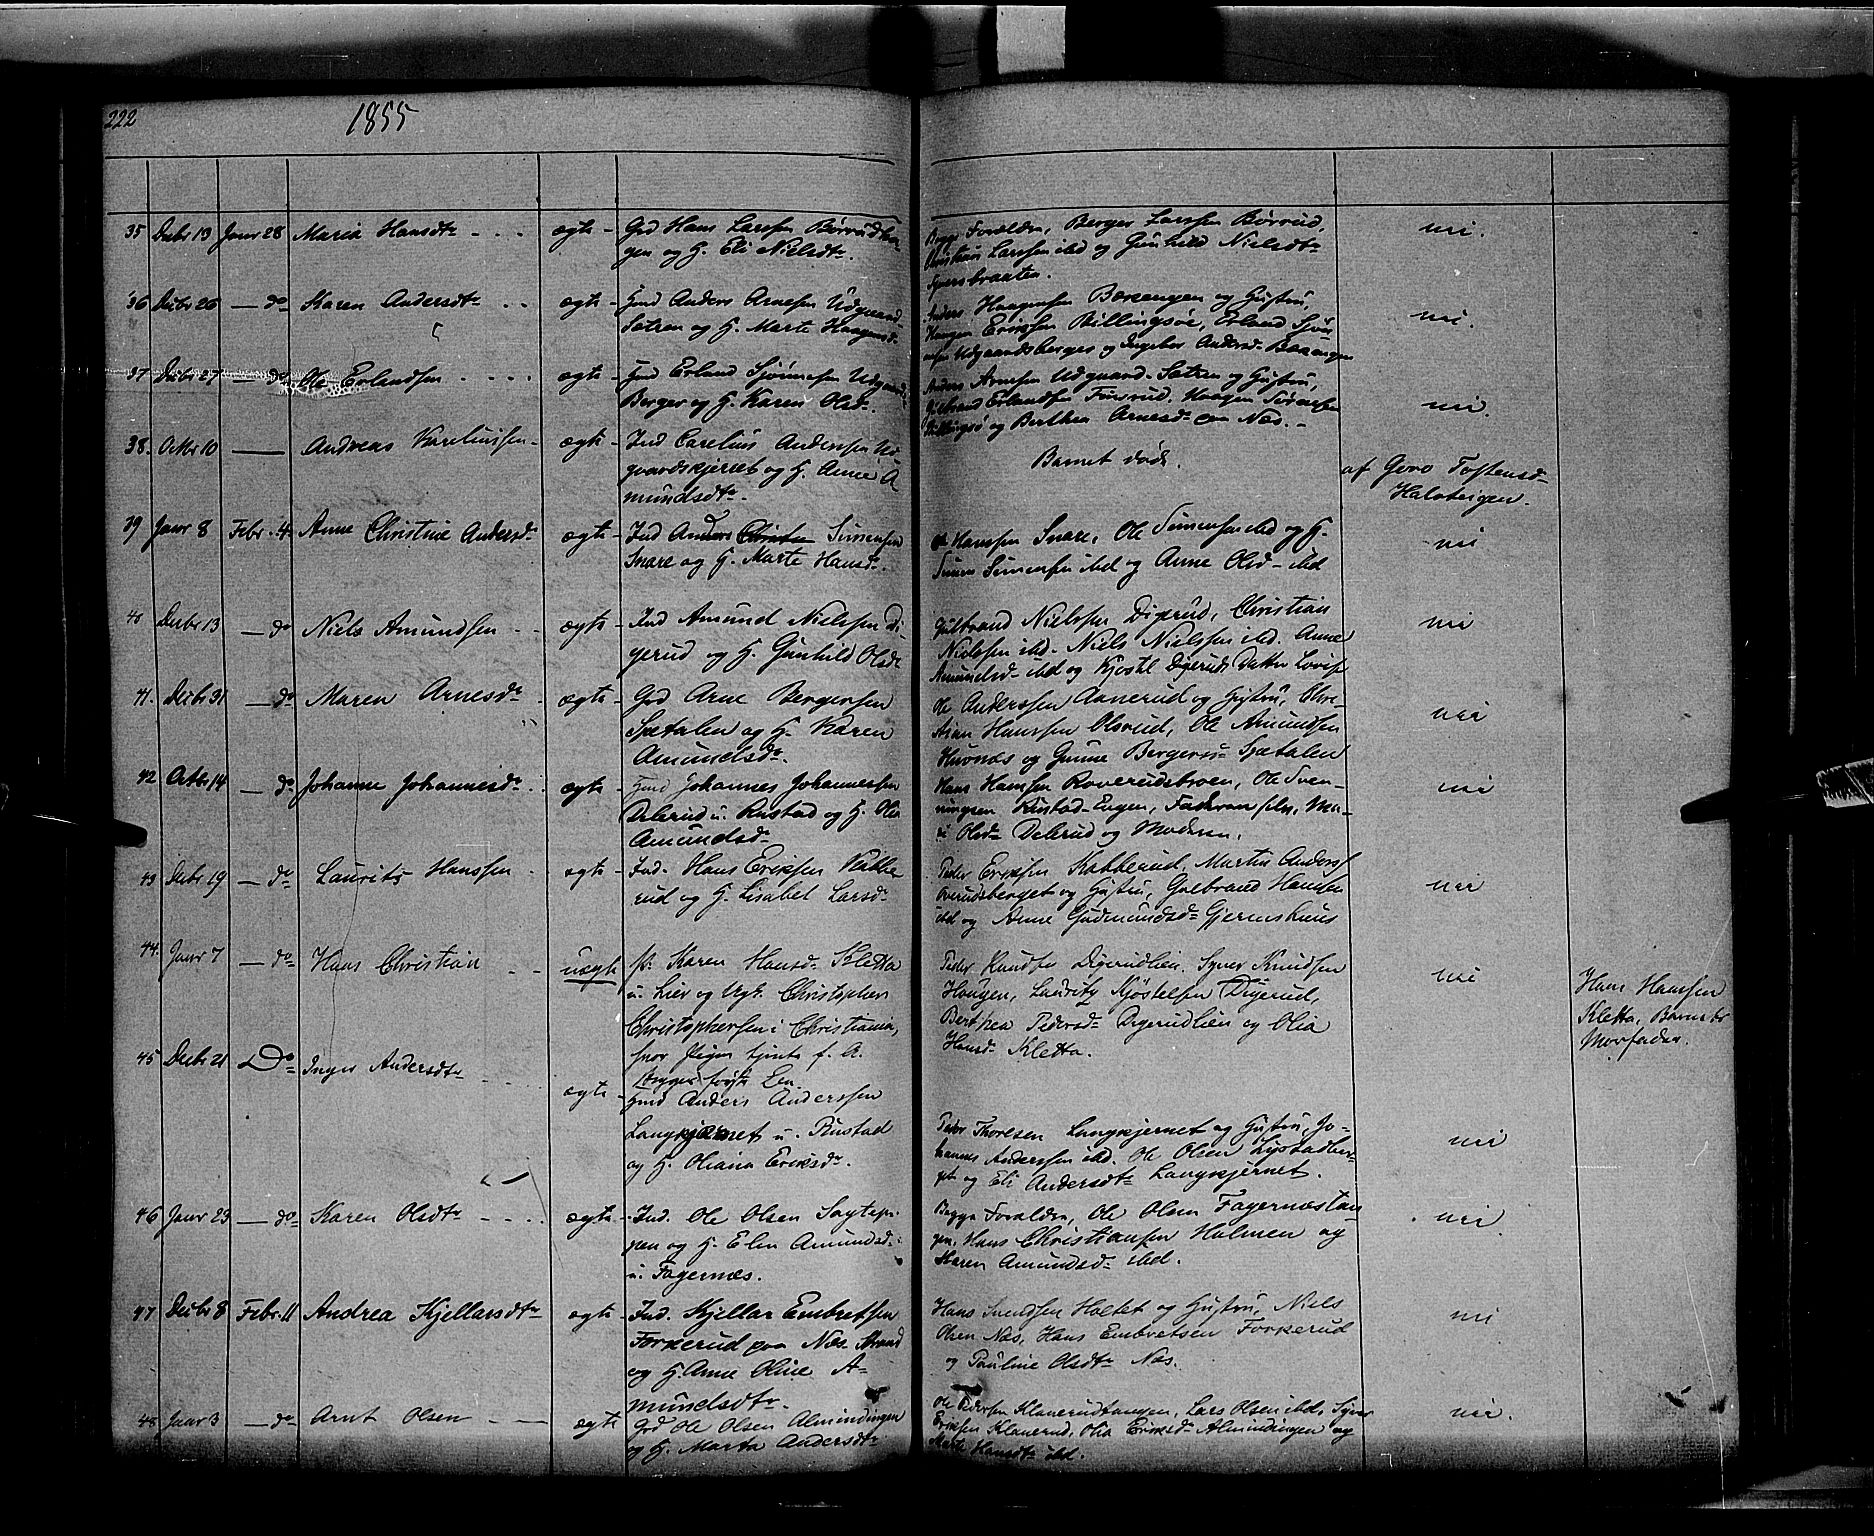 222
1855
35 Decbr 19 Janr 28 Maria Hansdtr ægte Grd Hans Larssen Børrud
gen og H. Eli Nielsdtr.
Begge Forældre, Berger Larssen Børrud,
Christian Larssen ibd og Gunhild Nielsdtr
Syversbraaten.
nei.
36 Decbr 26 — do Karen Andersdtr ægte Huusd Anders Arnesen Udgaard-
Sætren og H. Marte Haagensd.
Anders Haagensen Bæxengen og Hustru,
Haagen Eriksen Billingsøe, Erland
Udgaardsberget og Ingebor Andersd. Bæxengen
nei.
37 Decbr 27 — do Ole Erlandsen ægte Huusd Erland Udgaards-
Berget og H. Karen Olsd.
Anders Arnesen Udgaard-Sætren og Hustru,
Gulbrand Erlandsen Finsrud. Haagen
Billingsø og Berthea Arnesd. paa Næs.
nei.
38. Octbr 10 — Andreas Kareliussen ægte Ind Carelius Andersen Ud-
gaardskjernet og H. Anne A
mundsdtr.
Barnet døde.
af Goro Tostensd.
Halvteigen.
39 Janr 8 Febr. 4 Anne Christine Andersd. ægte Ind Anders Christen Simensen
Snare og H. Marte Hansd.
Hanssen Snare, Ole Simensen ibd og H.
Simen Simensen ibd og Anne Olsd. ibd
nei
40 Decbr 13 — do Niels Amundsen ægte Ind Amund Nielssen Di-
gerud og H. Gunhild Olsd.
Gulbrand Nielssen Digerud, Christian
Nielssen ibd. Niels Nielssen ibd. Anne
Amundsd. ibd og Kjostl Digeruds Datter Lovise
nei
41. Decbr 31 — do Maren Arnesdr ægte Grd Arne Bergersen
Spetalen og H. Karen
Amundsdr.
Ole Anderssen Aanerud og Hustru, Chri-
stian Hanssen Olsrud, Ole Amundsen
Huvnæs og Gunne Bergersd. Spetalen
nei
42 Octbr 14 — do Johanne Johannesdr ægte Huusd Johannes Johannessen
Delerud u. Rustad og H. Olia
Amundsd.
Hans Hanssen Roverudstroen, Ole Sven-
ningsen Rustad-Engen, Faderen selv, Ma-
ri Olsd. Delerud og Moderen.
nei
43 Decbr 19 — do Laurits Hanssen ægte Ind. Hans Eriksen Kabbe
rud og H. Lisabet Larsd.
Peder Eriksen Kabberud, Martin Anderss.
og Hustru, Gulbrand Hansen
ibd og Anne Gudmundsd. Gjermshuus
nei
44. Janr 7 — do Hans Christian uægte P. Karen Hansd. Kletta
u. Lier og Ugk. Christopher
Christophersen i Christiania,
hvor Pigen tjente f. A.
Begges første Leie.
Peder Knudsen Digerudlien. Syver Knudsen
Haugen, Lauritz Kjostelsen Digerud,
Berthea Pedersd. Digerudlien og Olia
Hansd. Kletta.
nei
Hans Hanssen
Kletta, Barnets
Morfader.
45 Decbr 21 Do Inger Andersdtr ægte Huusd Anders Anderssen
Langkjernet u. Rustad
og H. Oliana Eriksdr.
Peder Thoresen Langkjernet og Hustru, Jo-
hannes Anderssen ibd. Ole Olsen Lystadber-
get og Eli Andersdtr Langkjernet.
nei
46 Janr 23 — do Karen Olsdtr ægte Ind. Ole Olsen
og H. Elen Amundsd.
u. Fagernæs.
Begge Forældre, Ole Olsen Fagernæstan-
gen, Hans Christiansen Holmen og
Karen Amundsd. ibd.
nei
47 Decbr 8 Febr. 11 Andrea Kjellarsdtr ægte Ind. Kjellar Embretsen
Forkerud paa Næs Strand
og H. Anne Oline A-
mundsdtr.
Hans Svendsen Holtet og Hustru, Niels
Olsen Næs, Hans Embretsen Forkerud
og Pauline Olsdtr Næs.
nei
48 Janr 3 — do Arnt Olsen ægte Grd Ole Olsen Almindingen
og H. Marta Andersdtr
Ole Pedersen Klanerudtangen, Lars Olsen ibd, Syver
Eriksen Klanerud, Olia Eriksd. Almindingen og
Marte Hansdtr ibd.
nei.